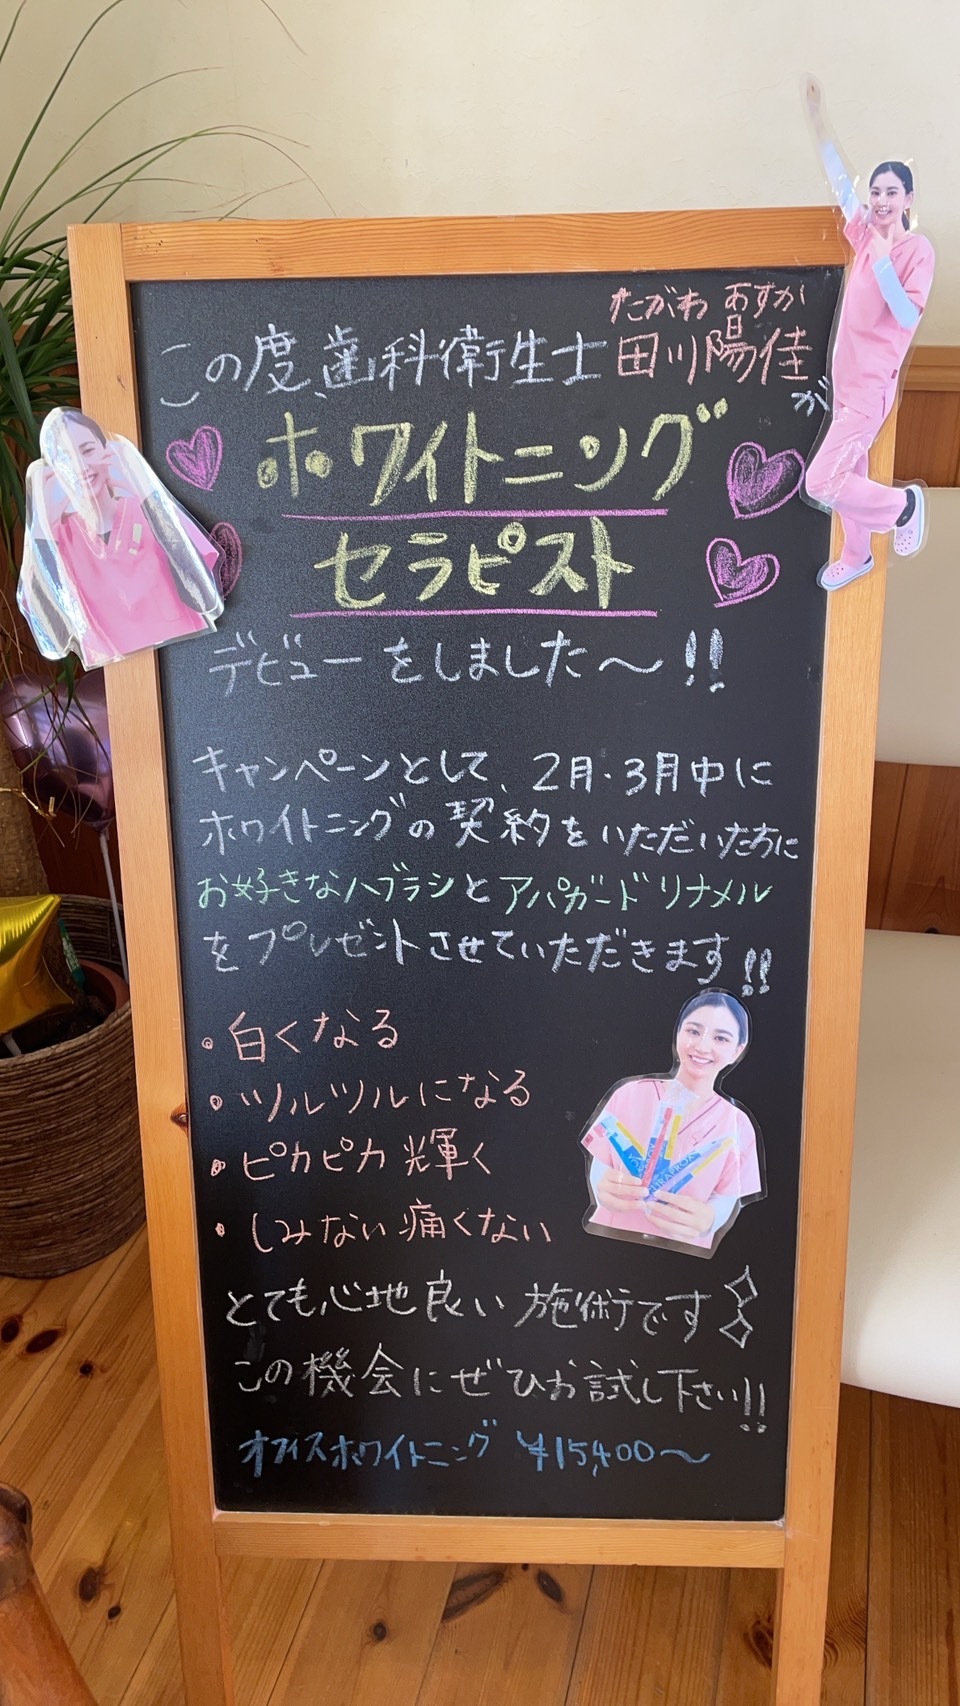 たがわ あすか
この度、歯科衛生士 田川陽佳が
ホワイトニング
セラピスト
デビューをしました〜!!
キャンペーンとして、2月・3月中に
ホワイトニングの契約をいただいた方に
お好きなハブラシとアパガードリナメル
をプレゼントさせていただきます!!
・白くなる
・ツルツルになる
・ピカピカ輝く
・しみない痛くない
とても心地良い施術です
この機会にぜひお試し下さい!!
オフィスホワイトニング ¥15,400〜
CURAPROX